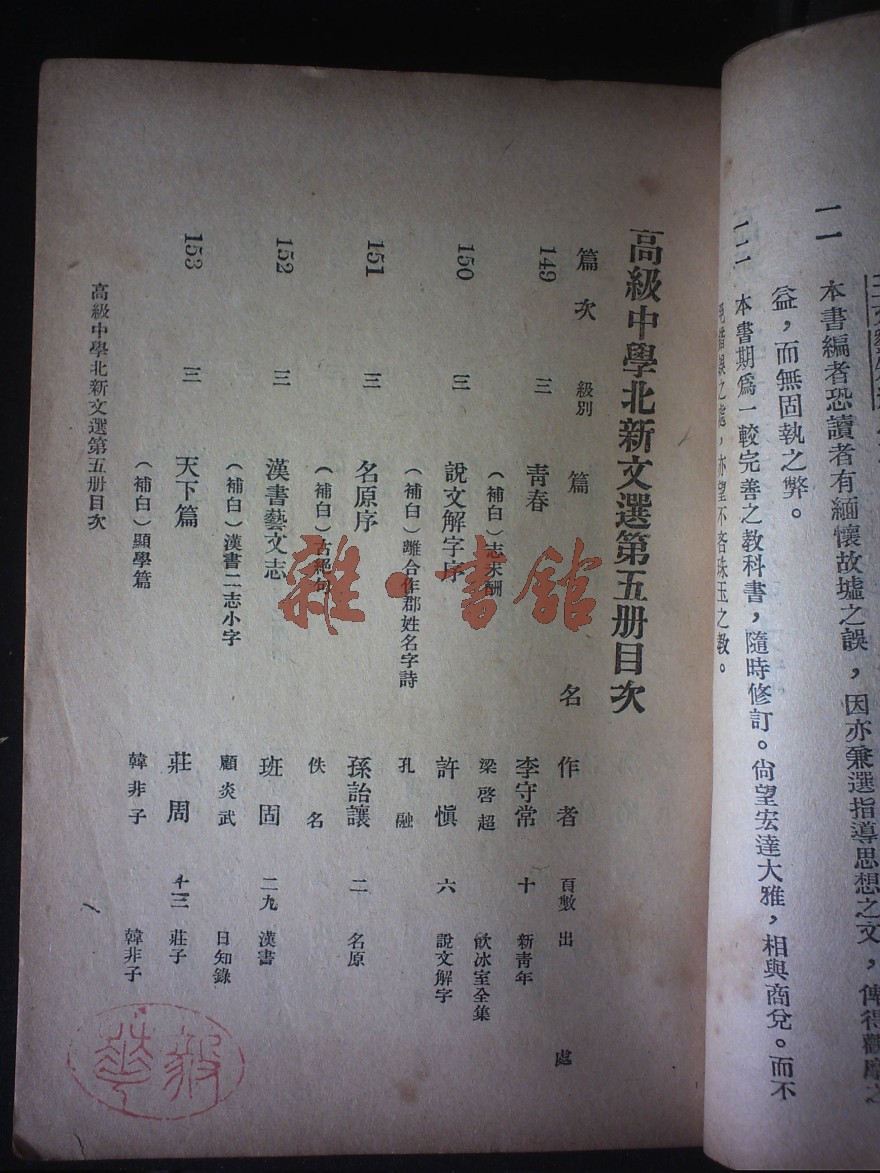 一一 本書編者恐讀者有緬懷故墟之誤，因亦兼選指導思想之文，俾得觀摩之
益，而無固執之弊。
一二 本書期爲一較完善之教科書，隨時修訂。尙望宏達大雅，相與商兌。而不
之處，亦望不吝珠玉之教。
高級中學北新文選第五册目次
篇次 級別 篇名 作者 頁數 出處
149 三 靑春 李守常 十 新靑年
（補白）志未酬 梁啓超 飮冰室全集
150 三 說文解字序 許愼 六 說文解字
（補白）離合作郡姓名字詩 孔融
151 三 名原序 孫詒讓 二 名原
（補白）古絕句 佚名
152 三 漢書藝文志 班固 二九 漢書
（補白）漢書二志小字 顧炎武 日知錄
153 三 天下篇 莊周 十三 莊子
（補白）顯學篇 韓非子 韓非子
高級中學北新文選第五册目次
一
雜·書館